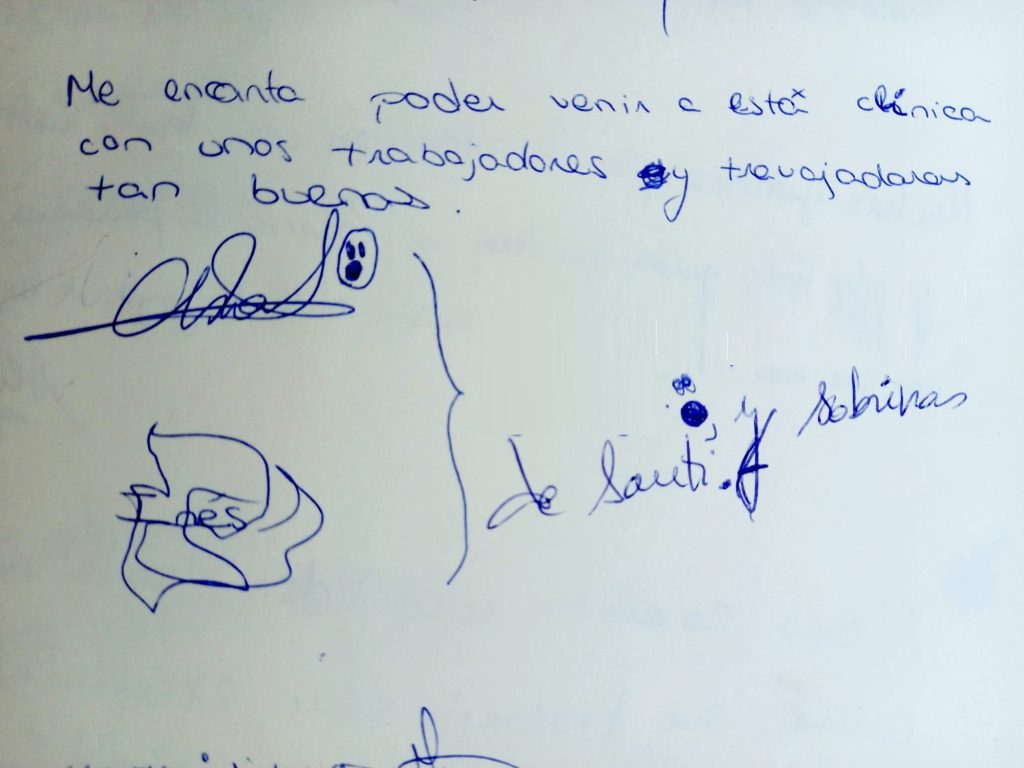 Me encanta poder venir a está clínica
con unos trabajadores y travajadoras
tan buenas.
Inés
de Santi. y sobrinas